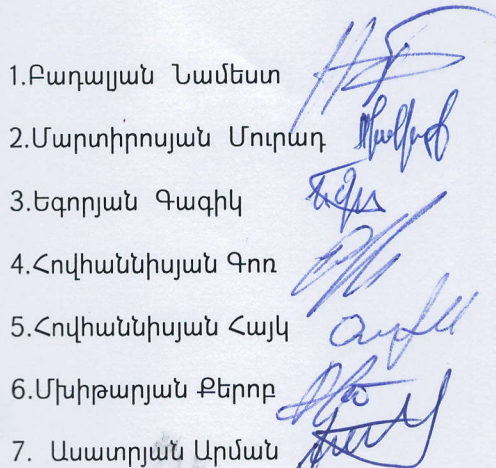 1.Բադալյան Նամեստ
2.Մարտիրոսյան Մուրադ
3.Եգորյան Գագիկ
4.Հովհաննիսյան Գոռ
5.Հովհաննիսյան Հայկ
6.Մխիթարյան Քերոբ
7. Ասատրյան Արման